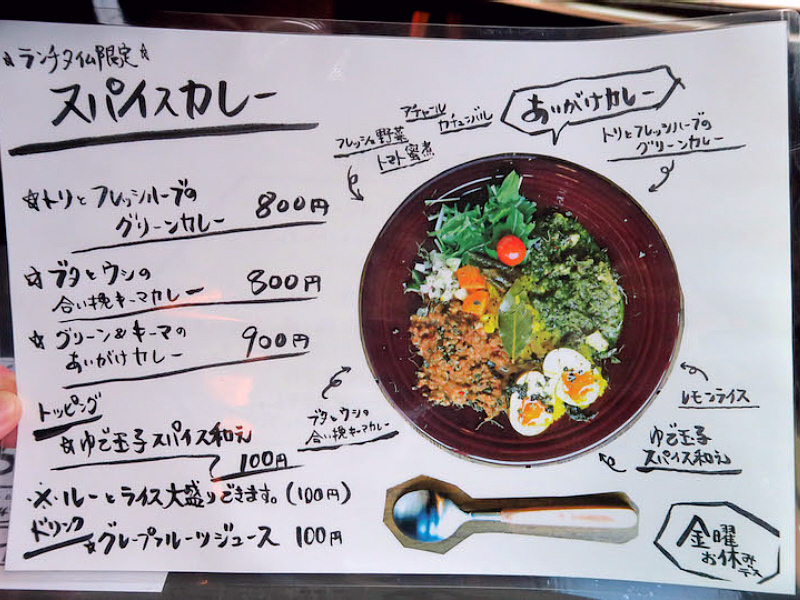 ☆ランチタイム限定☆
スパイスカレー
☆トリとフレッシュハーブの
グリーンカレー 800円
☆ブタとウシの
合い挽キーマカレー 800円
☆グリーン&キーマの
あいがけカレー 900円
トッピング
☆ゆで玉子スパイス和え
100円
※ルーとライス大盛りできます。(100円)
ドリンク
☆グレープフルーツジュース 100円
あいがけカレー
アチャール
カチュンバル
フレッシュ野菜
トマト蜜煮
トリとフレッシュハーブの
グリーンカレー
ブタとウシの
合い挽キーマカレー
レモンライス
ゆで玉子
スパイス和え
金曜
お休み
デス